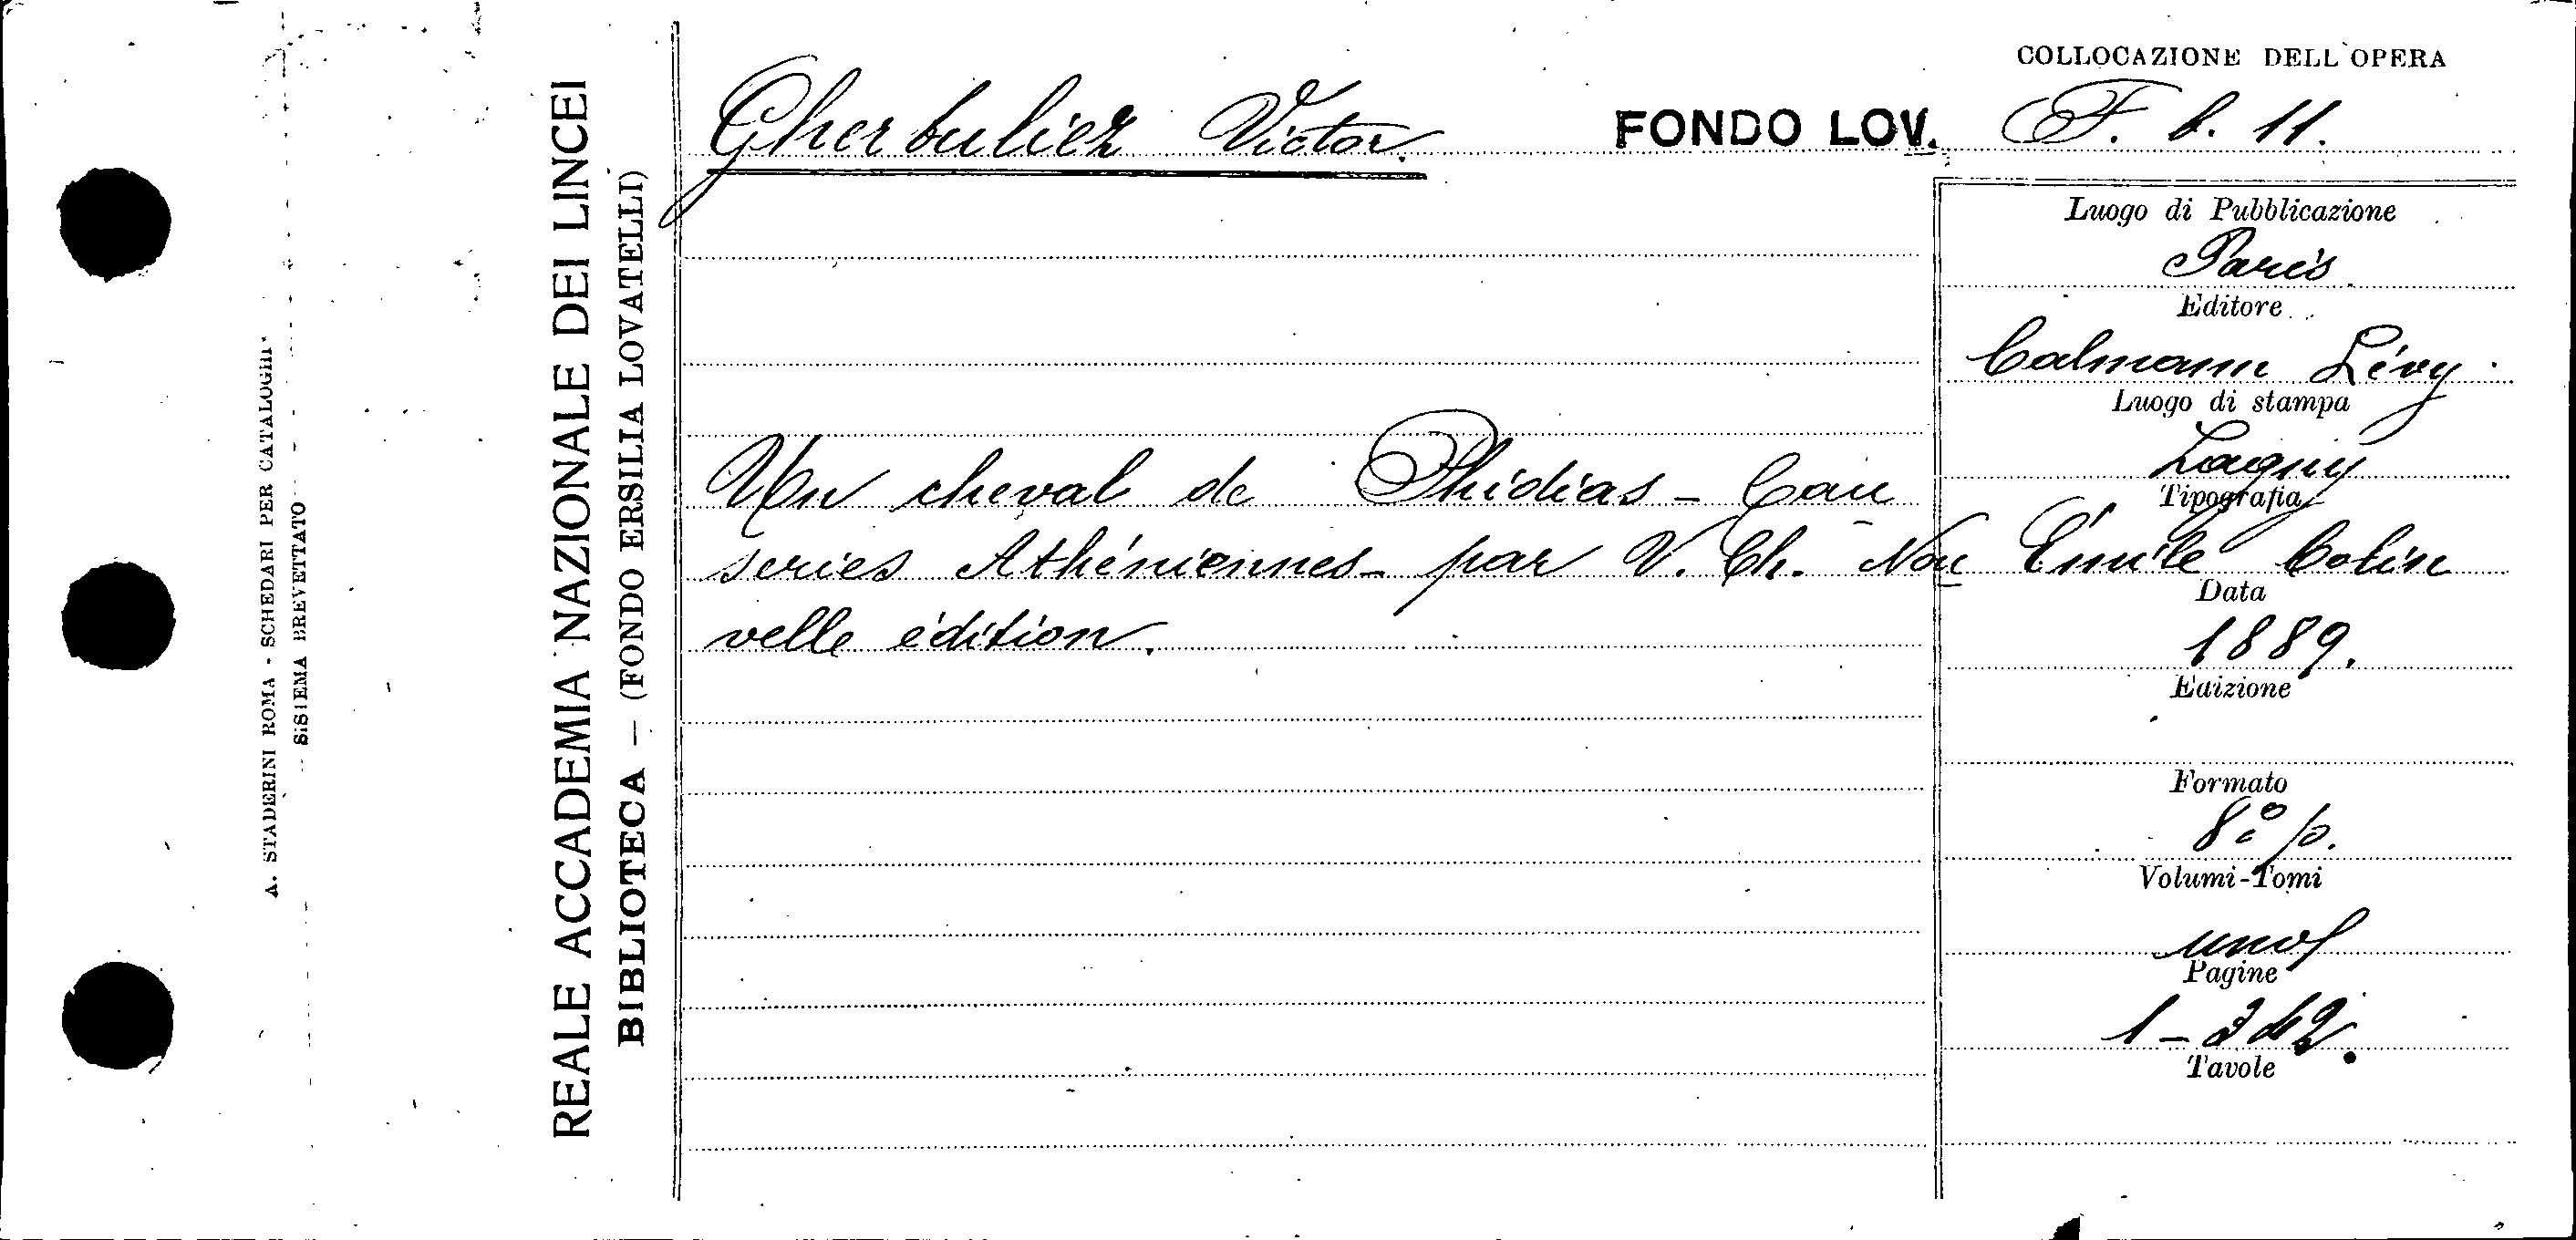 COLLOCAZIONE DELL'OPERA
Gherbuliez Victor.
FONDO LOV. F. b. 11.
Luogo di Pubblicazione
Paris
Editore
Calmann Lévy
Luogo di stampa
Lagny
Tipografia
Émile Colin
Data
1889.
Edizione
Formato
8° p.
Volumi-Tomi
uno
Pagine
1-342.
Tavole
Un cheval de Phidias - Cau
series Athéniennes - par V. Ch. Nou
velle édition.
REALE ACCADEMIA NAZIONALE DEI LINCEI
BIBLIOTECA — (FONDO ERSILIA LOVATELLI)
A. STADERINI ROMA - SCHEDARI PER CATALOGHI
SISTEMA BREVETTATO